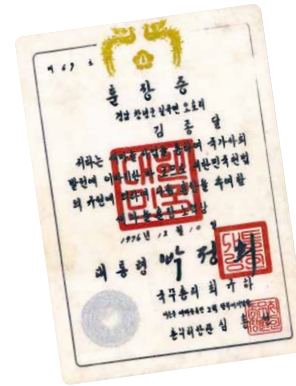 제 69 호
훈장증
경남 창녕군 길곡면 오호리
김종달
귀하는 새마을사업을 통하여 국가사회
발전에 이바지한 바 크므로 대한민국헌법
의 규정에 따라 다음 훈장을 수여함
새마을훈장
1976년 12월 10일
대통령 박정희
국무총리 최규하
총무처장관 심